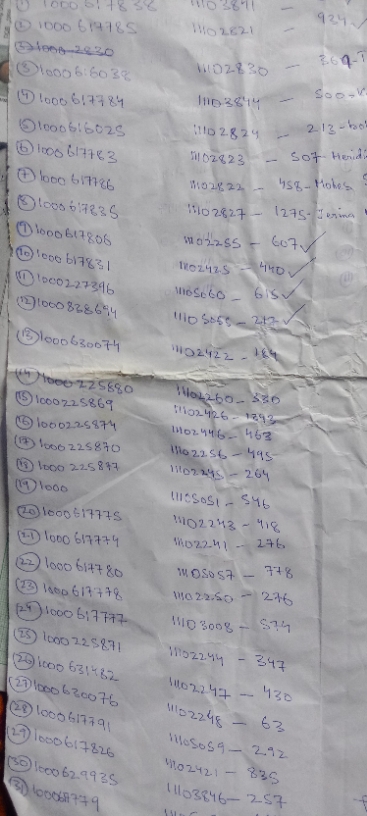 ① 1000617838 11103841 -
② 1000617785 11102821 - 934-
③ 1000 2830
③ 1000616038 11102830 - 369-T
④ 1000617784 11103844 - 500-K
⑤ 1000616025 11102824 - 213-bo
⑥ 1000617783 11102823 - 507-Meridi
⑦ 1000617786 11102822 - 458-Mokes
⑧ 1000617835 11102827 - 1275-Jerina
⑨ 1000617806 11102255 - 607 ✓
⑩ 1000617831 11102425 - 440 ✓
⑪ 1000227396 11105060 - 615 ✓
⑫ 1000838694 11105055 - 217 ✓
⑬ 1000630074 11102422 - 184
⑭ 1000225880 11102260 - 330
⑮ 1000225869 11102426 - 1343
⑯ 1000225874 11102446 - 463
⑰ 1000225870 11102256 - 495
⑱ 1000225877 11102245 - 264
⑲ 1000 11105051 - 546
⑳ 1000617775 11102243 - 418
㉑ 1000617774 11102241 - 276
㉒ 1000617780 11105057 - 778
㉓ 1000617778 11102250 - 276
㉔ 1000617777 11103008 - 574
㉕ 1000225871 11102244 - 347
㉖ 1000631482 11102247 - 430
㉗ 1000630076 11102248 - 63
㉘ 1000617791 11105059 - 292
㉙ 1000617826 11102421 - 835
㉚ 1000629935 11103846 - 257
㉛ 100061779